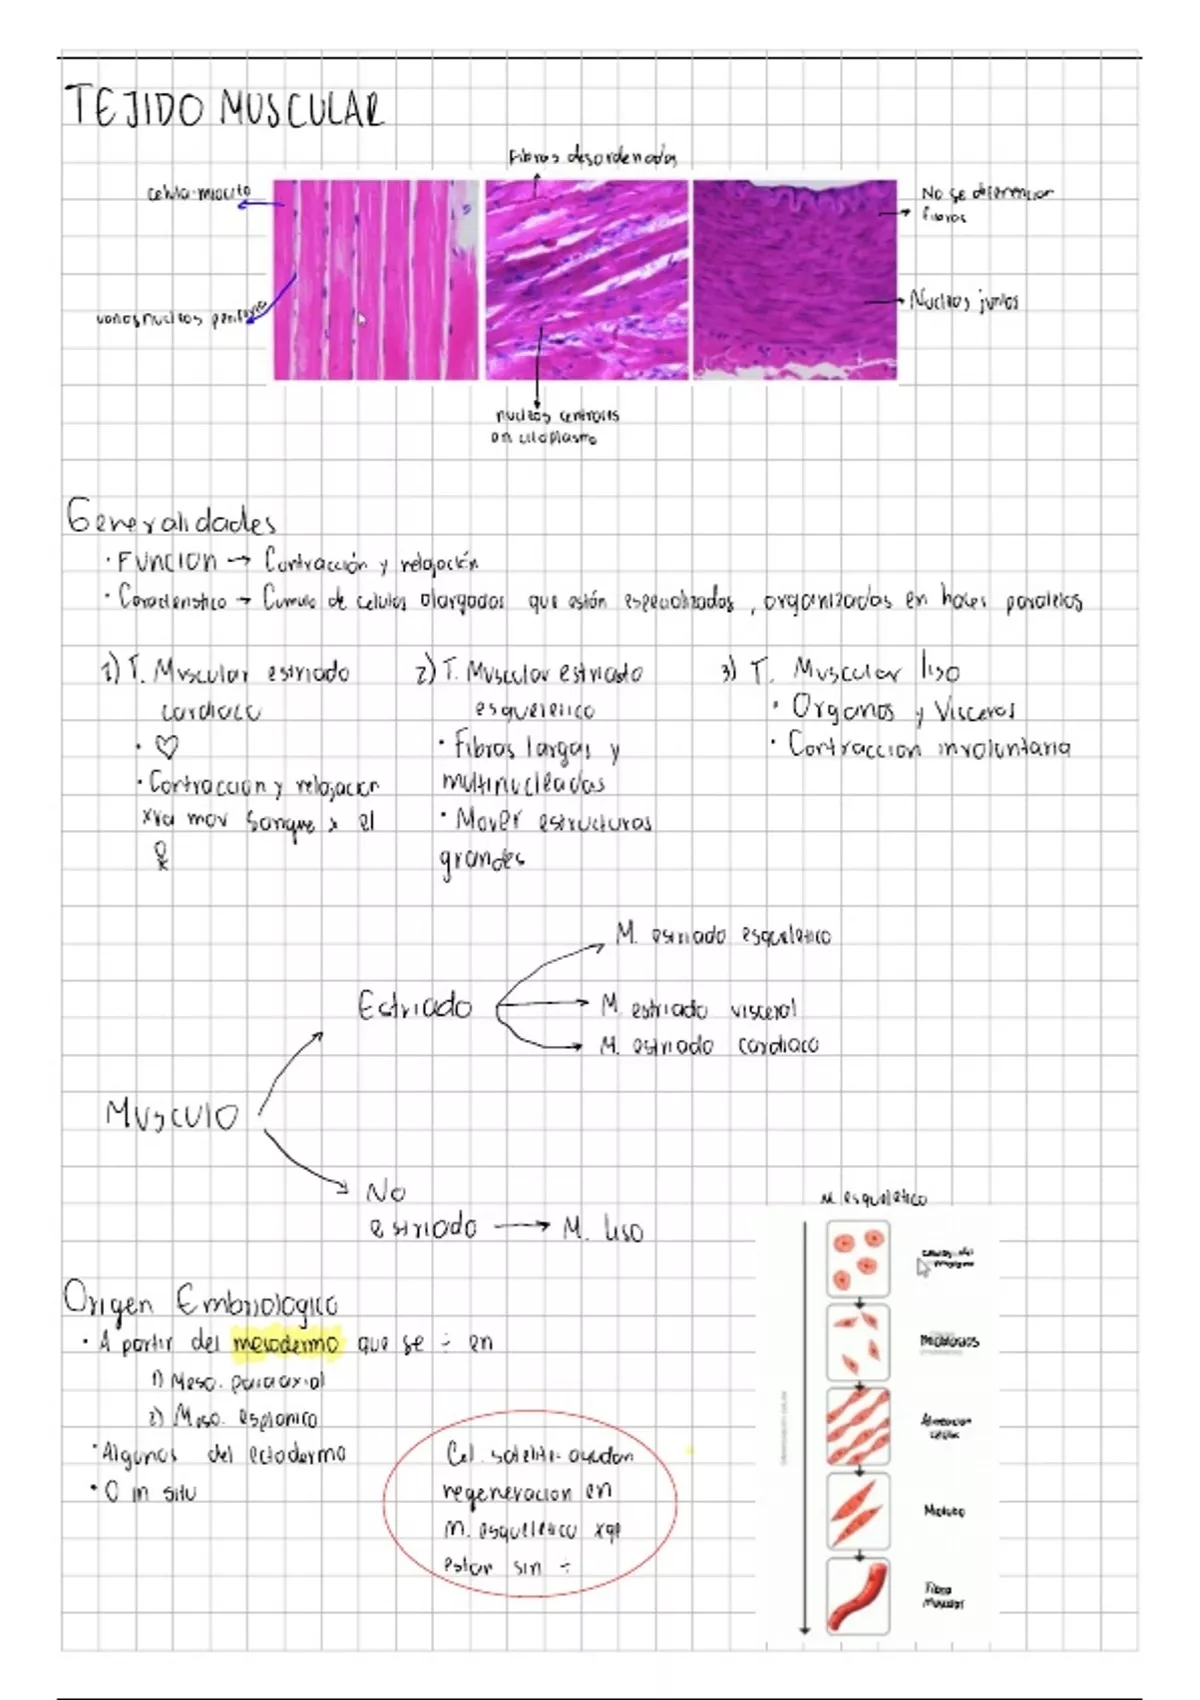 TEJIDO MUSCULAR
Fibras desordenadas
Celula-miocito
No se diferencian
fibras
Nucleos juntos
varios nucleos periferia
nucleos centrales
en citoplasma
Generalidades
· FUNCION → Contracción y relajación
· Caracteristica → Cumulo de celulas alargadas que están especializadas, organizadas en haces paralelos
1) T. Muscular estriado
cardiaco
· ♡
· Contraccion y relajacion
xra mov sangre x el
2) T. Muscular estriado
esqueletico
· Fibras largas y
multinucleadas
· Mover estructuras
grandes
3) T. Muscular liso
· Organos y Visceras
· Contraccion involuntaria
M. estriado esqueletico
Estriado
M. estriado visceral
M. estriado cardiaco
MUSCULO
No
estriado → M. Liso
M. esqueletico
Origen Embriologico
· A partir del mesodermo que se ÷ en
1) Meso. paraaxial
2) Meso. esplanico
· Algunos del ectodermo
· O in situ
Cel. satelite ayudan
regeneracion en
M. esqueletico xqe
estar sin ÷
Mioblastos
Alineacion
celular
Miotubo
Fibra
muscular